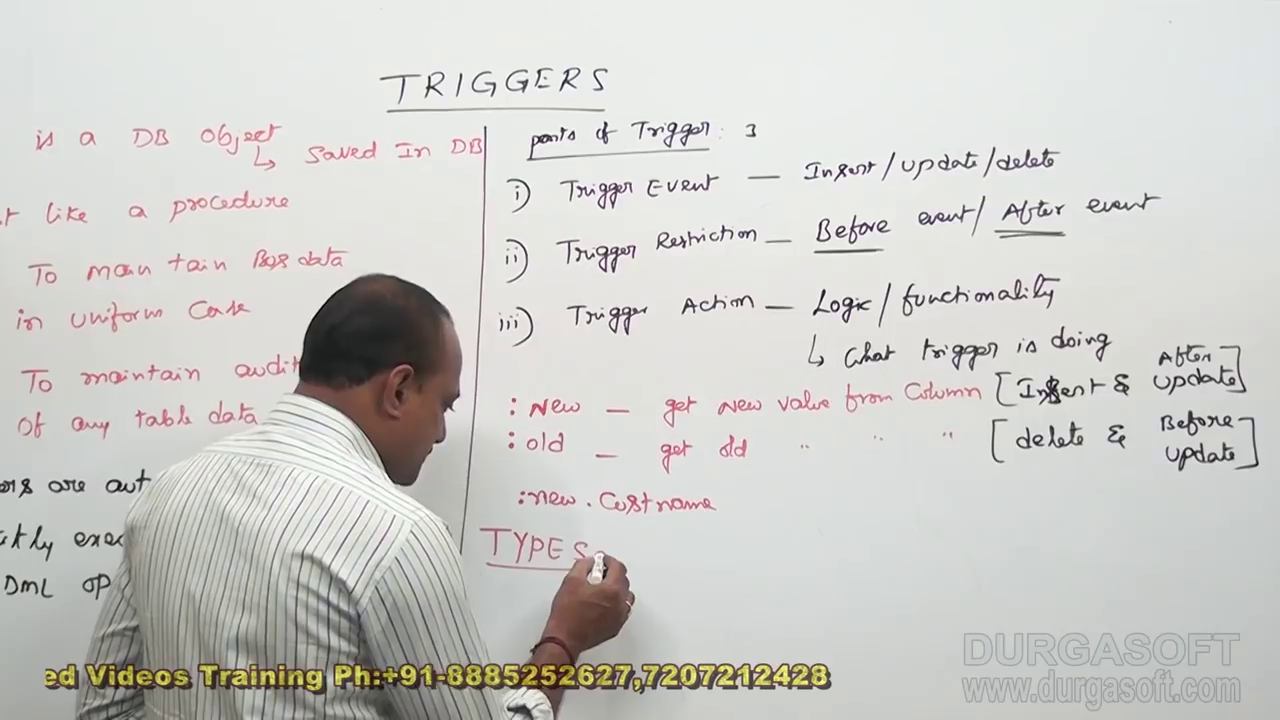 TRIGGERS
is a DB object
↳ saved In DB
like a procedure
To maintain Bus data
in uniform Case
To maintain audit
of any table data
are aut
exec
DML op
parts of Trigger : 3
i) Trigger Event — Insert/update/delete
ii) Trigger Restriction — Before event/ After event
iii) Trigger Action — Logic/functionality
↳ what trigger is doing
:New — get New value from Column [Insert & After update]
:old — get old " " " [delete & Before update]
:new.Custname
TYPES
ed Videos Training Ph:+91-8885252627,7207212428
DURGASOFT
www.durgasoft.com